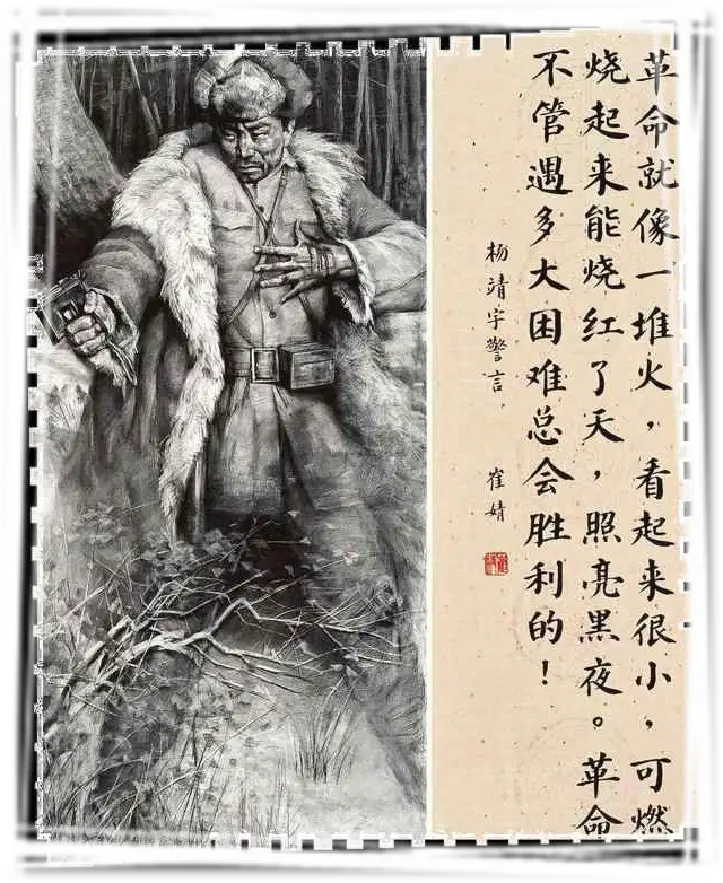 革命就像一堆火，看起来很小，可燃
烧起来能烧红了天，照亮黑夜。革命
不管遇多大困难总会胜利的！
杨靖宇警言，
崔婧